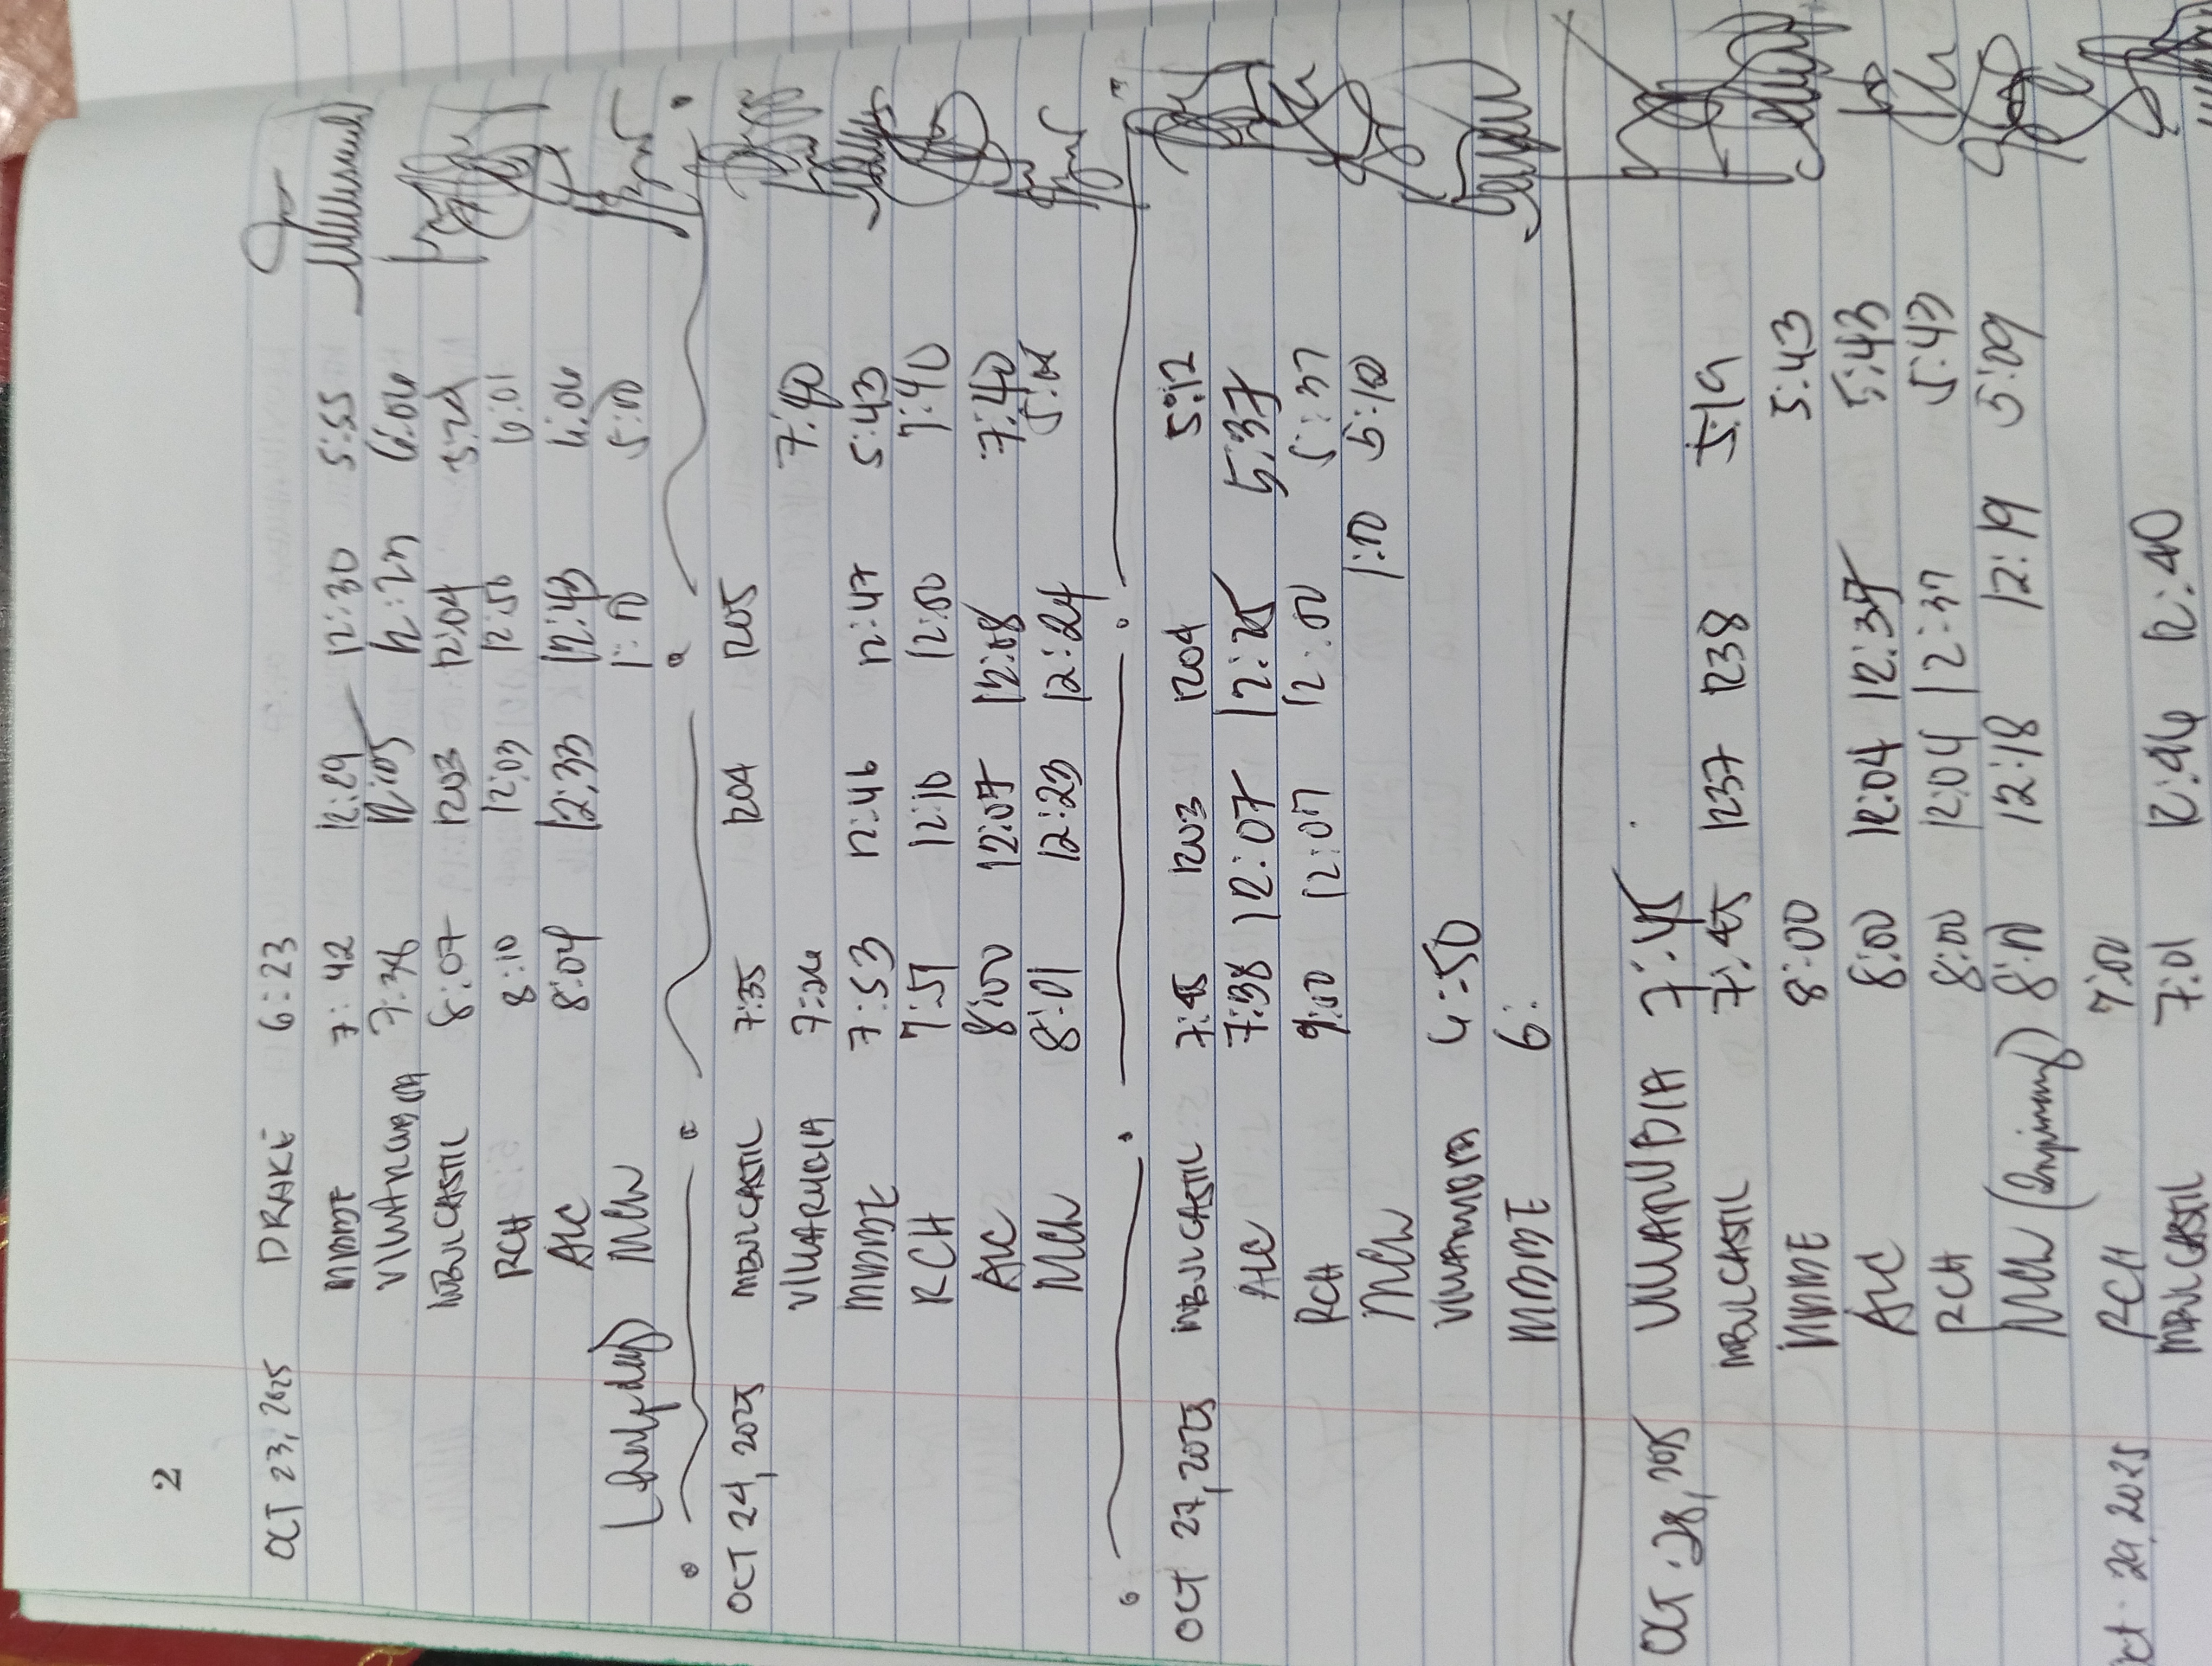 2
OCT 23, 2025 DRAKE 6:23
MDMDE 7:42 12:29 12:30 5:55
VILLARUBIA 7:36 12:05 12:27 6:06
MBVLCASTIL 8:07 1203 12:04 5:29
RCH 8:10 12:03 12:50 6:01
ALC 8:04 12:33 12:43 6:06
(half day) MCW 1:00 5:00
OCT 24, 2025 MBVLCASTIL 7:35 1204 1205
VILLARUBIA 7:26 7:40
MDMDE 7:53 12:46 12:47 5:43
RCH 7:57 12:10 12:50 7:40
ALC 8:00 12:07 12:08 7:40
MCW 8:01 12:23 12:24
OCT 27, 2025 MBVLCASTIL 7:45 1203 1204 5:12
ALC 7:38 12:07 12:25 5:37
RCH 9:00 12:07 12:50 5:37
MCW 1:00 5:10
VILLARUBIA 4:50
MDMDE 6:
OCT. 28, 2025 VILLARUBIA 7:45
MBVLCASTIL 7:45 1237 1238 5:19
MDMDE 8:00 5:43
ALC 8:00 12:04 12:37 5:43
RCH 8:00 12:04 12:37 5:43
MCW 8:00 12:18 12:19 5:09
Oct. 29, 2025 RCH 7:00
MBVLCASTIL 7:01 12:40